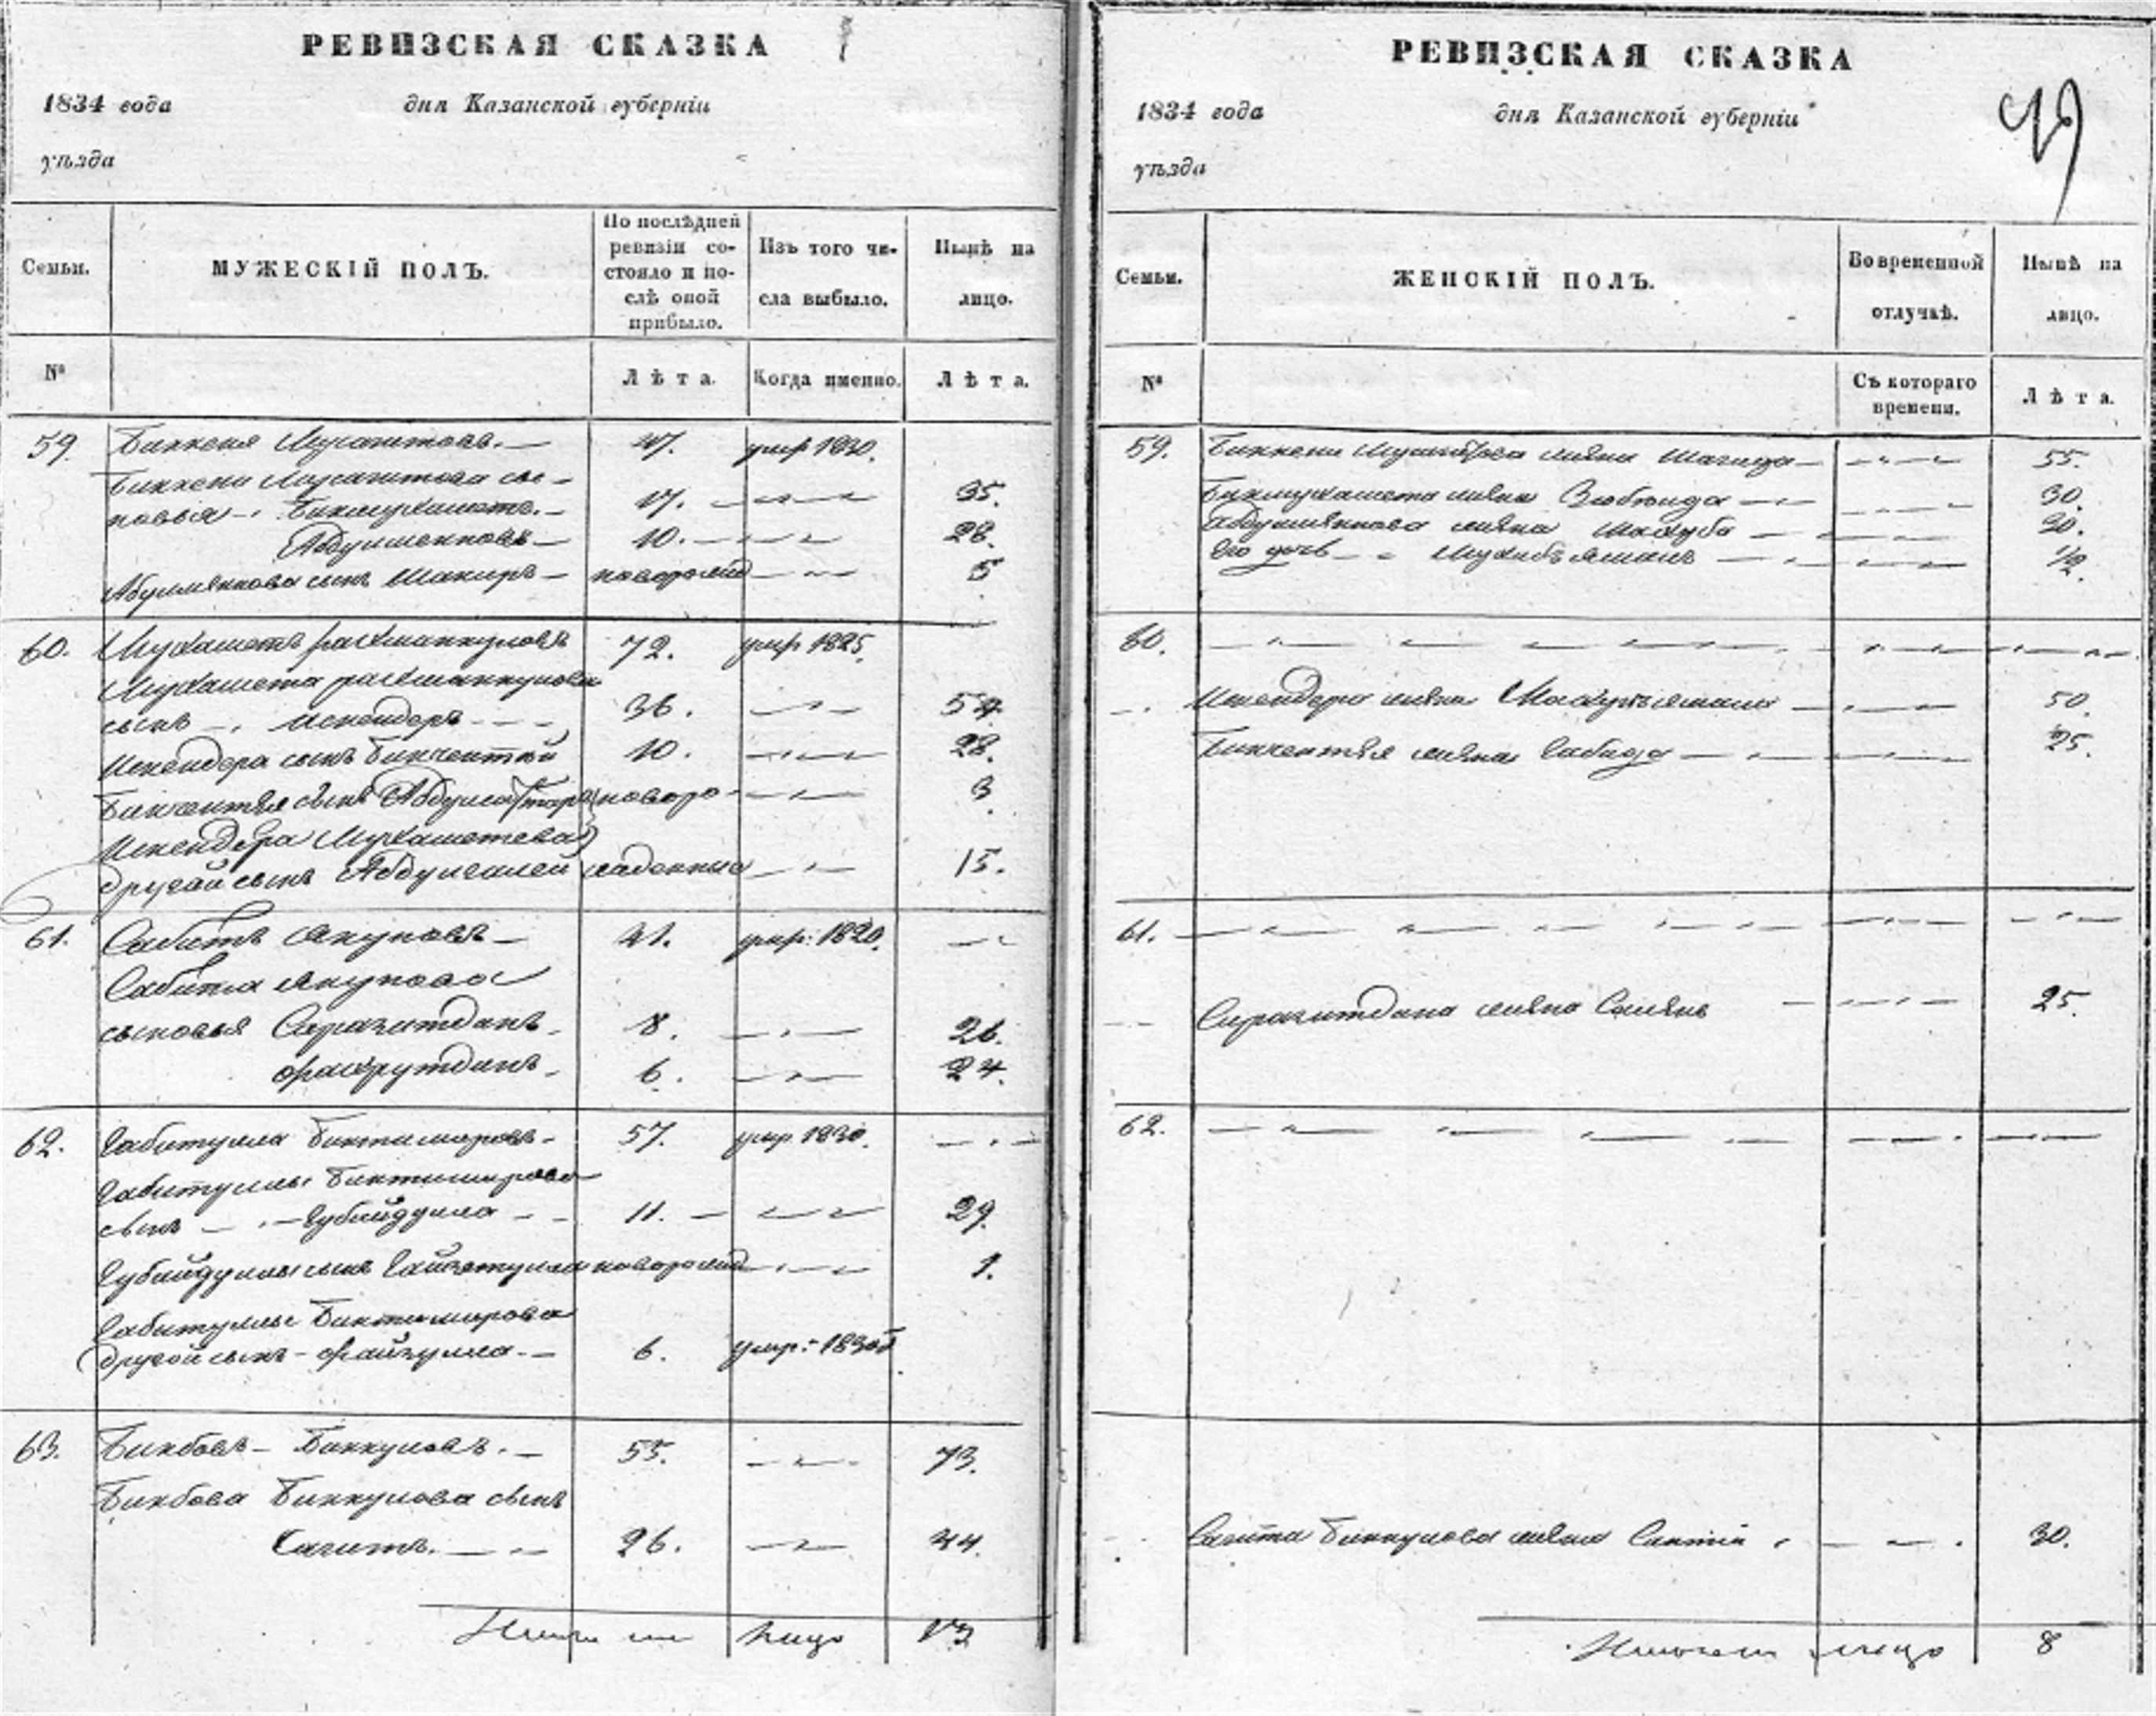 РЕВИЗСКАЯ СКАЗКА
1834 года дня Казанской губерніи
уѣзда
Семьи.
МУЖЕСКІЙ ПОЛЪ.
По послѣдней ревизіи состояло и послѣ оной прибыло.
Изъ того числа выбыло.
Нынѣ на лицо.
№
Лѣта.
Когда именно.
Лѣта.
59. Биккеня Мусагитовъ. 47. умр 1830.
Биккени Мусагитова сы-
новья Бикмухаметъ. 17. 35.
Абдулменновъ 10. 28.
сынъ Шакиръ новорожд 5
60. Мухаметъ Рахманкуловъ 72. умр 1825.
Мухамета Рахманкулова
сынъ Искендеръ 36. 54
Искендера сынъ Бикчентей 10. 28.
Бикчентея сынъ новоро- 3
Искендера Мухаметева
другой сынъ Абдулгалей 15.
61. Сабитъ Якуповъ 41. умр: 1820.
Сабита Якупова
сыновья Сиразитдинъ 8. 26.
Фахрутдинъ. 6. 24.
62. Габитулла Биктимировъ 57. умр 1830.
Габитуллы Биктимирова
сынъ Губайдулла 11. 29.
Губайдуллы сынъ новорожд 1.
Габитуллы Биктимирова
другой сынъ Файзулла 6. умр:
63. Бикбовъ Биккуловъ. 55. 73.
Бикбова Биккулова сынъ
Сагитъ. 26. 44.
лицо 13
РЕВИЗСКАЯ СКАЗКА
49
1834 года дня Казанской губерніи
уѣзда
Семьи.
ЖЕНСКІЙ ПОЛЪ.
Во временной отлучкѣ.
Нынѣ на лицо.
№
Съ котораго времени.
Лѣта.
59. Биккени Мусагитова жена 55.
Бикмухамета жена Зюбаида 30.
жена Махуба 30.
Его дочь 1/2.
60.
Искендера жена 50.
Бикчентея жена 25.
61.
Сиразитдина жена 25.
62.
Сагита Биккулова жена 30.
лицо 8